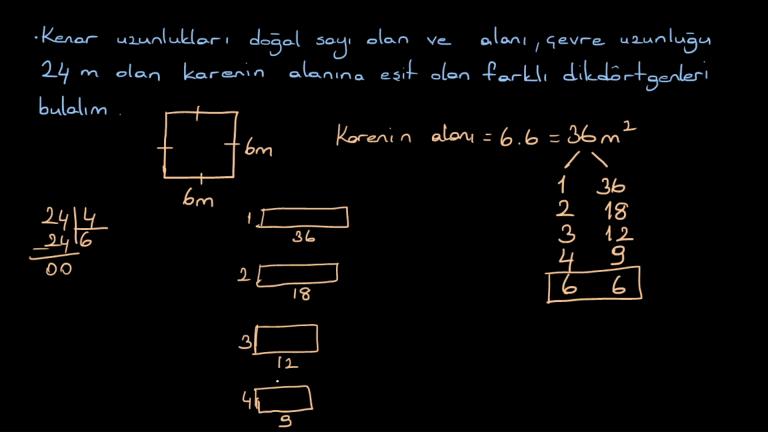 · Kenar uzunlukları doğal sayı olan ve alanı, çevre uzunluğu
24 m olan karenin alanına eşit olan farklı dikdörtgenleri
bulalım.
6m
6m
Karenin alanı = 6.6 = 36 m²
1 36
2 18
3 12
4 9
6 6
24 4
-24 6
00
1
36
2
18
3
12
4
9